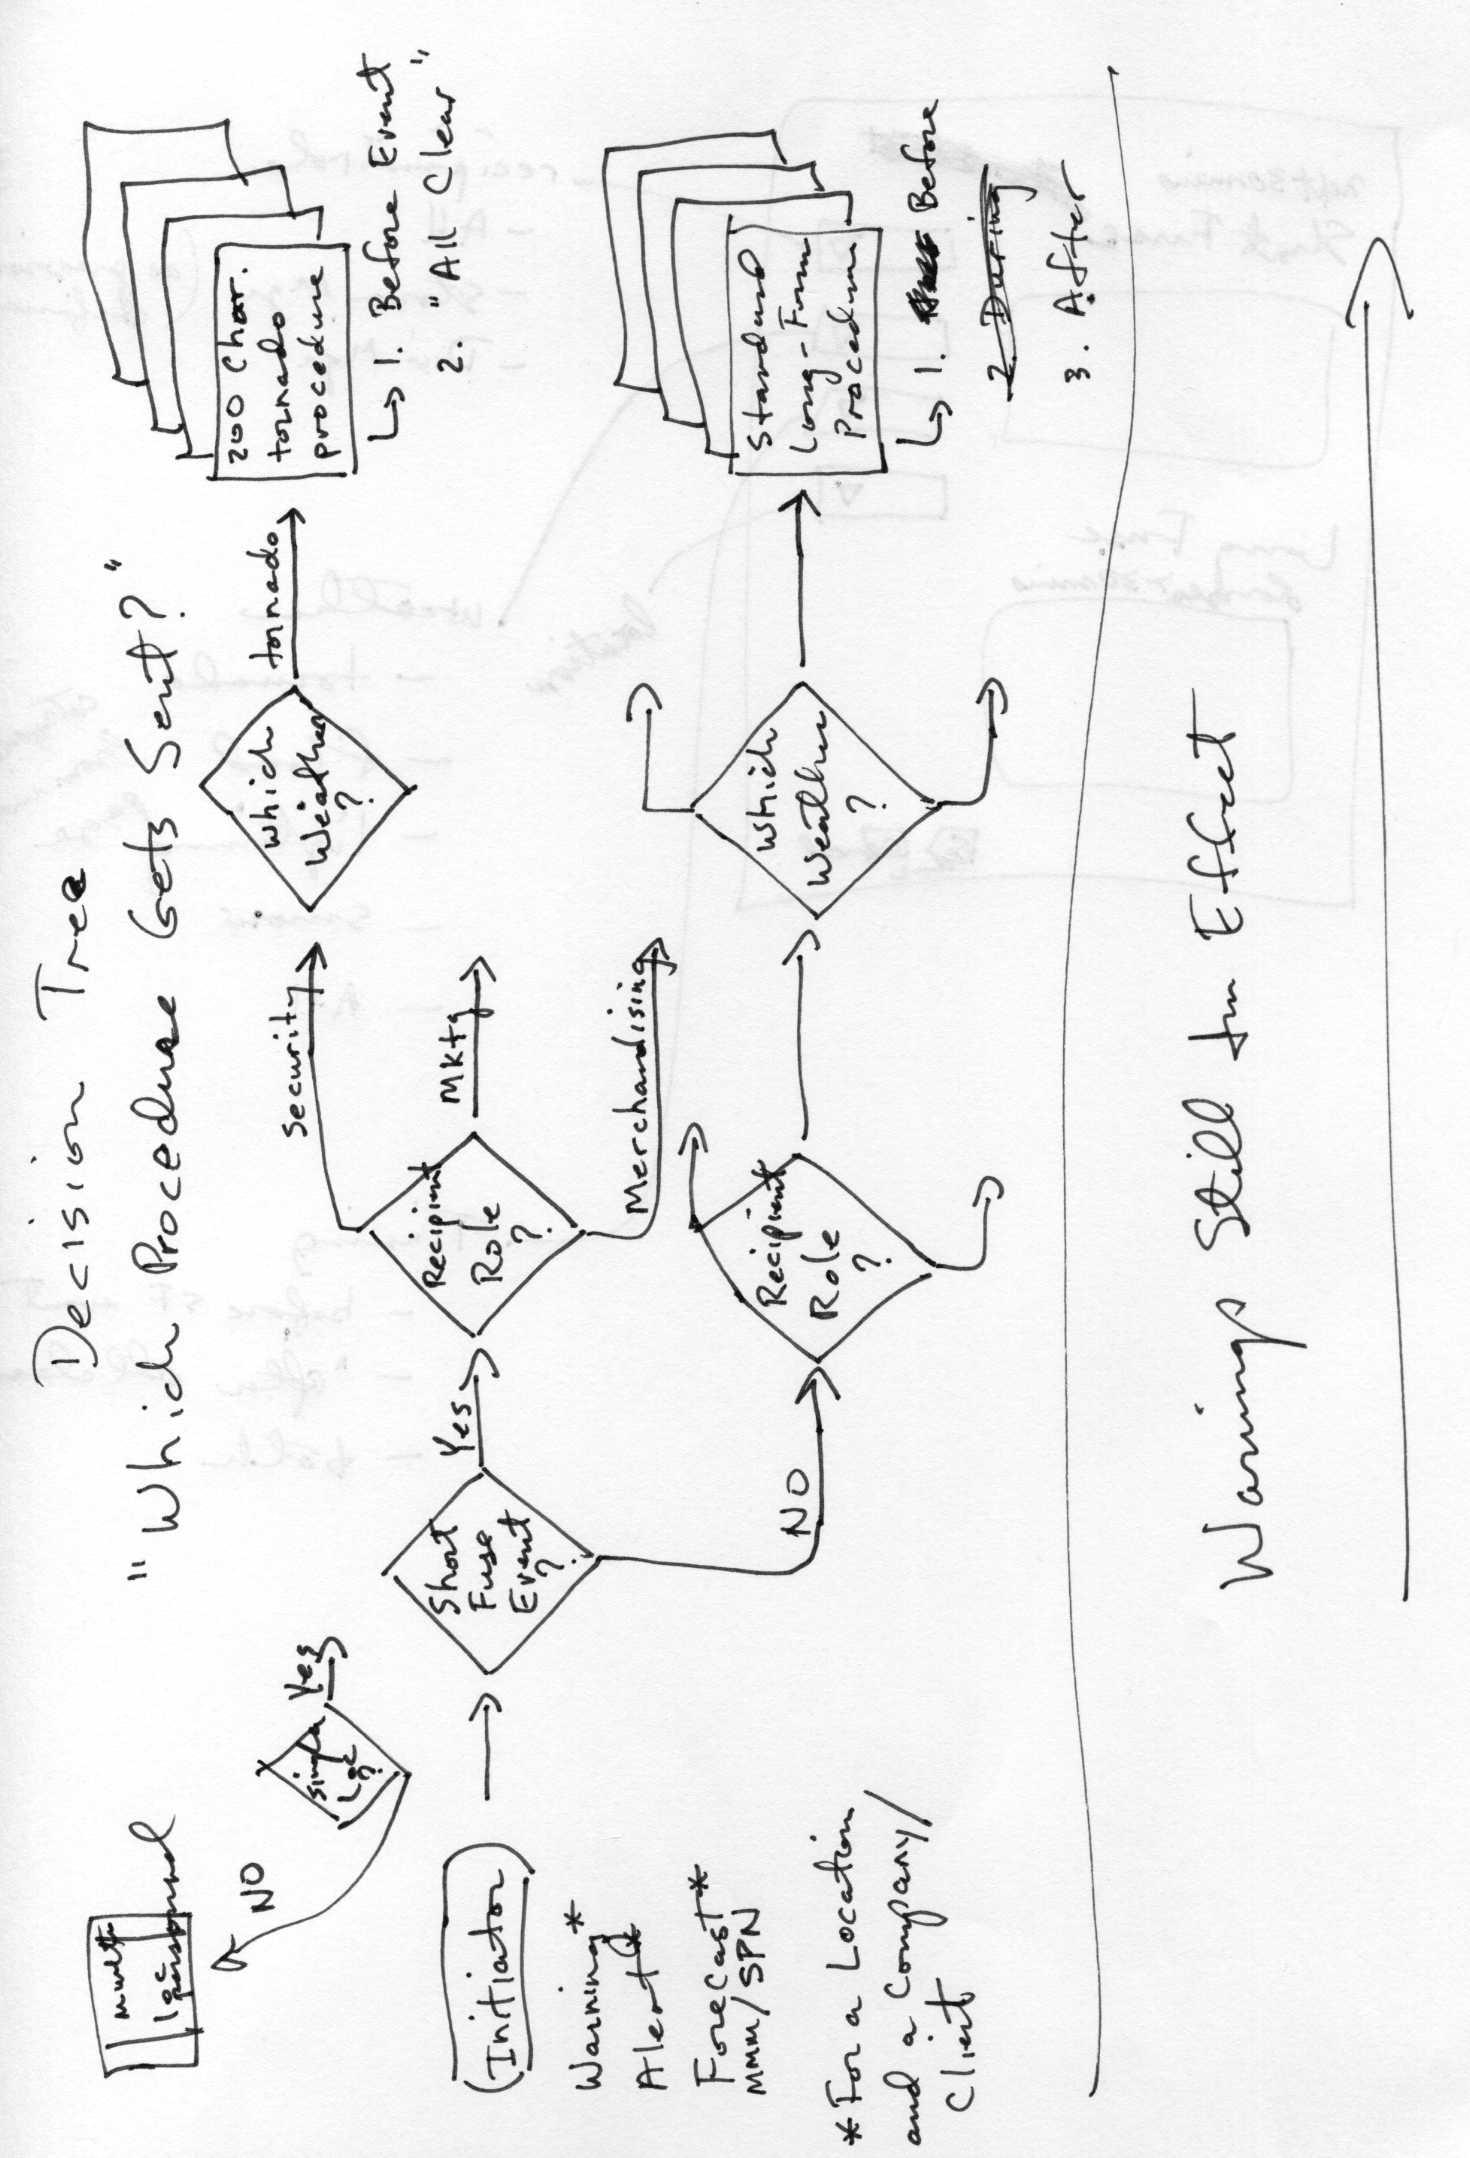 Decision Tree
"Which Procedure Gets Sent?"
multi
loc
personnel
NO
Single
Loc
?
Yes
(Initiator
Warning*
Alert*
Forecast*
MMM/SPN
*For a Location
and a Company/
Client
Short
Fuse
Event
?
Yes
NO
Recipient
Role
?
Security
Mktg
Merchandising
Which
Weather
?
tornado
200 Char.
tornado
procedure
↳ 1. Before Event
2. "All Clear"
Recipient
Role
?
Which
Weather
?
Standard
Long-Form
Procedure
↳ 1. Before
2. During
3. After
Warning Still In Effect